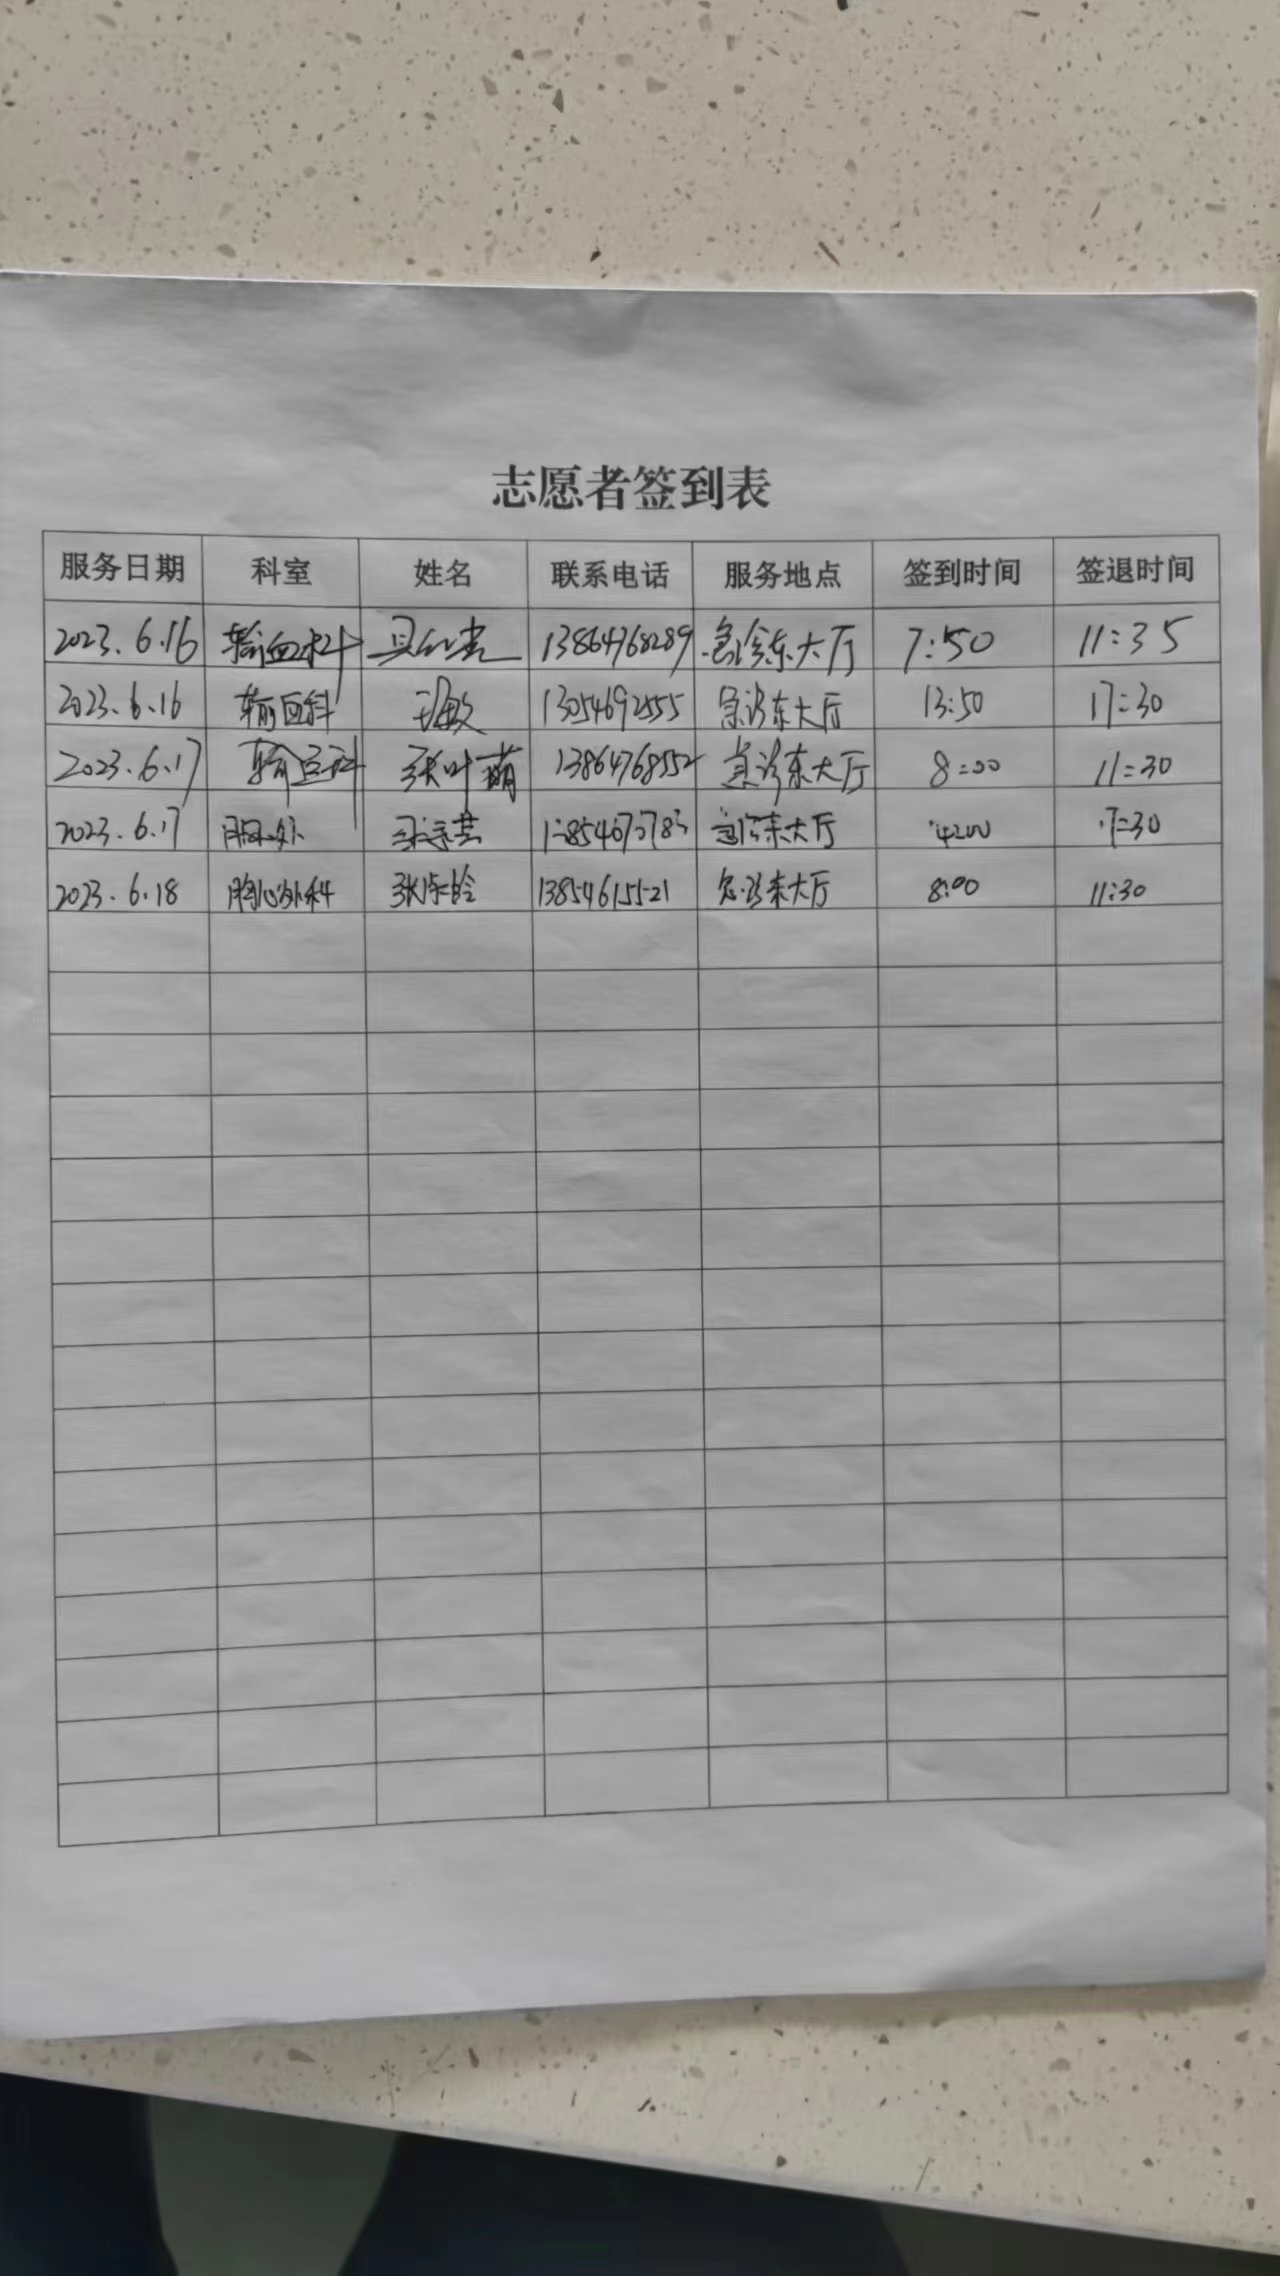 志愿者签到表
服务日期 科室 姓名 联系电话 服务地点 签到时间 签退时间
2023.6.16 输血科 13864768289 急诊东大厅 7:50 11:35
2023.6.16 输血科 王敏 13054692555 急诊东大厅 13:50 17:30
2023.6.17 输血科 张叶萌 13864768552 急诊东大厅 8:00 11:30
2023.6.17 急诊东大厅
2023.6.18 胸心外科 13854615521 急诊东大厅 8:00 11:30